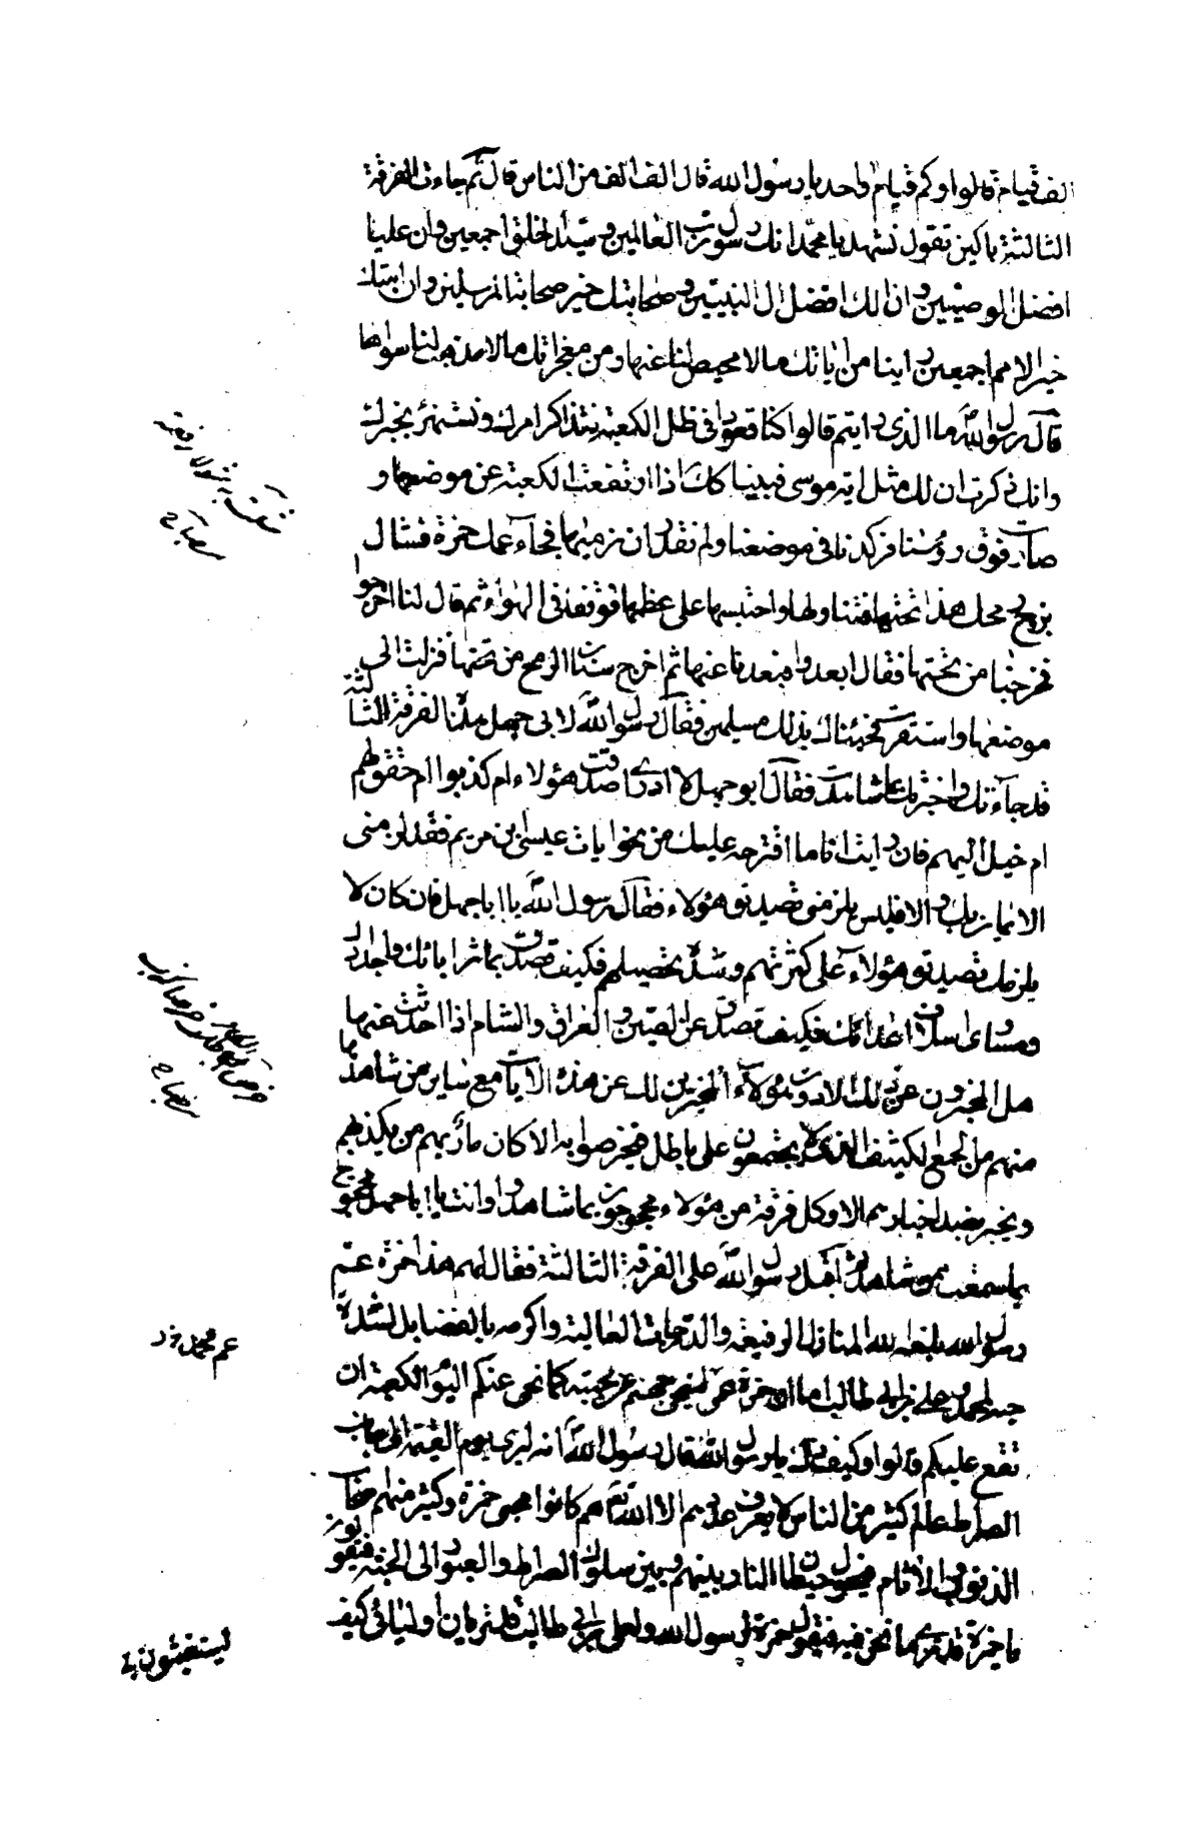 الف قيام قالوا وكم قيام واحد يا رسول الله قال الف الف من الناس قال ثم جاءت الفرقة
الثالثة باكين تقول نشهد يا محمد انك رسول رب العالمين وسيد الخلق اجمعين وان عليا
افضل الوصيين وان الك افضل ال النبيين وصحابتك خير صحابة المرسلين وان امتك
خير الامم اجمعين راينا من اياتك ما لا محيص لنا عنها ومن معجزاتك ما لا مذهب لنا سواها
قال رسول الله ما الذى رايتم قالوا كنا قعودا فى ظل الكعبة نتذاكر امرك ونستهزئ بخبرك
وانك ذكرت ان لك مثل اية موسى فبينا كك اذا ارتفعت الكعبة عن موضعها و
صارت فوق رؤسنا فركدنا فى موضعنا ولم نقدر ان نريمها فجآء عمك حمزة فشال
بزج رمحه هكذا تحتها فتناولها واحتبسها على عظمها فوقنا فى الهواء ثم قال لنا اخرجوا
فخرجنا من تحتها فقال ابعدوا فبعدنا عنها ثم اخرج سنان الرمح من تحتها فنزلت الى
موضعها واستقرت فجئناك بذلك مسلمين فقال رسول الله لابى جهل هذه الفرقة الثالثة
قد جآءتك واخبرتك بما شاهدت فقال ابو جهل لا ادرى اصدق هؤلاء ام كذبوا ام حقق لهم
ام خيل اليهم فان رايت انا ما اقترحه عليك من نحو ايات عيسى بن مريم فقد لزمنى
الايمان بك والا فليس يلزمنى تصديق هؤلاء فقال رسول الله يا ابا جهل فان كان لا
يلزمك تصديق هؤلآء على كثرتهم وشدة تحصيلهم فكيف تصدق بمآثر ابائك واجدادك
ومساوى اسلاف اعدائك وكيف تصدق عن الصين والعراق والشام اذا حدثت عنها
هل المخبرون عن ذلك الا دون هؤلآء المخبرين لك عن هذه الايات مع ساير من شاهدها
منهم من الجمع الكثيف الذين لا يجتمعون على باطل يتخرصونه الا كان بازائهم من يكذبهم
ويخبر بضد اخبارهم الا وكل فرقة من هؤلاء محجوجون بما شاهدوا وانت يا ابا جهل محجوج
بما سمعت ممن شاهد ثم اقبل رسول الله على الفرقة الثالثة فقال لهم هذا حمزة عم
رسول الله بلغه الله المنازل الرفيعة والدرجات العالية واكرمه بالفضايل لشدة
حبه لمحمد وعلى بن ابى طالب اما ان حمزة عم محمد لينحى جهنم عن محبيه كما نحى عنكم اليوم الكعبة ان
تقع عليكم قالوا وكيف ذلك يا رسول الله قال رسول الله انه ليرى يوم القيمة الى جانب
الصراط عالم كثير من الناس لا يعرف عددهم الا الله تع هم كانوا محبى حمزة وكثير منهم اصحاب
الذنوب والاثام فيحول حيطان النار بينهم وبين سلوك الصراط والعبور الى الجنة فيقولون
يا حمزة قد ترى ما نحن فيه فيقول حمزة لرسول الله ولعلى بن ابى طالب قد تريان اوليائى كيف
عم محمد
يستغيثون بى